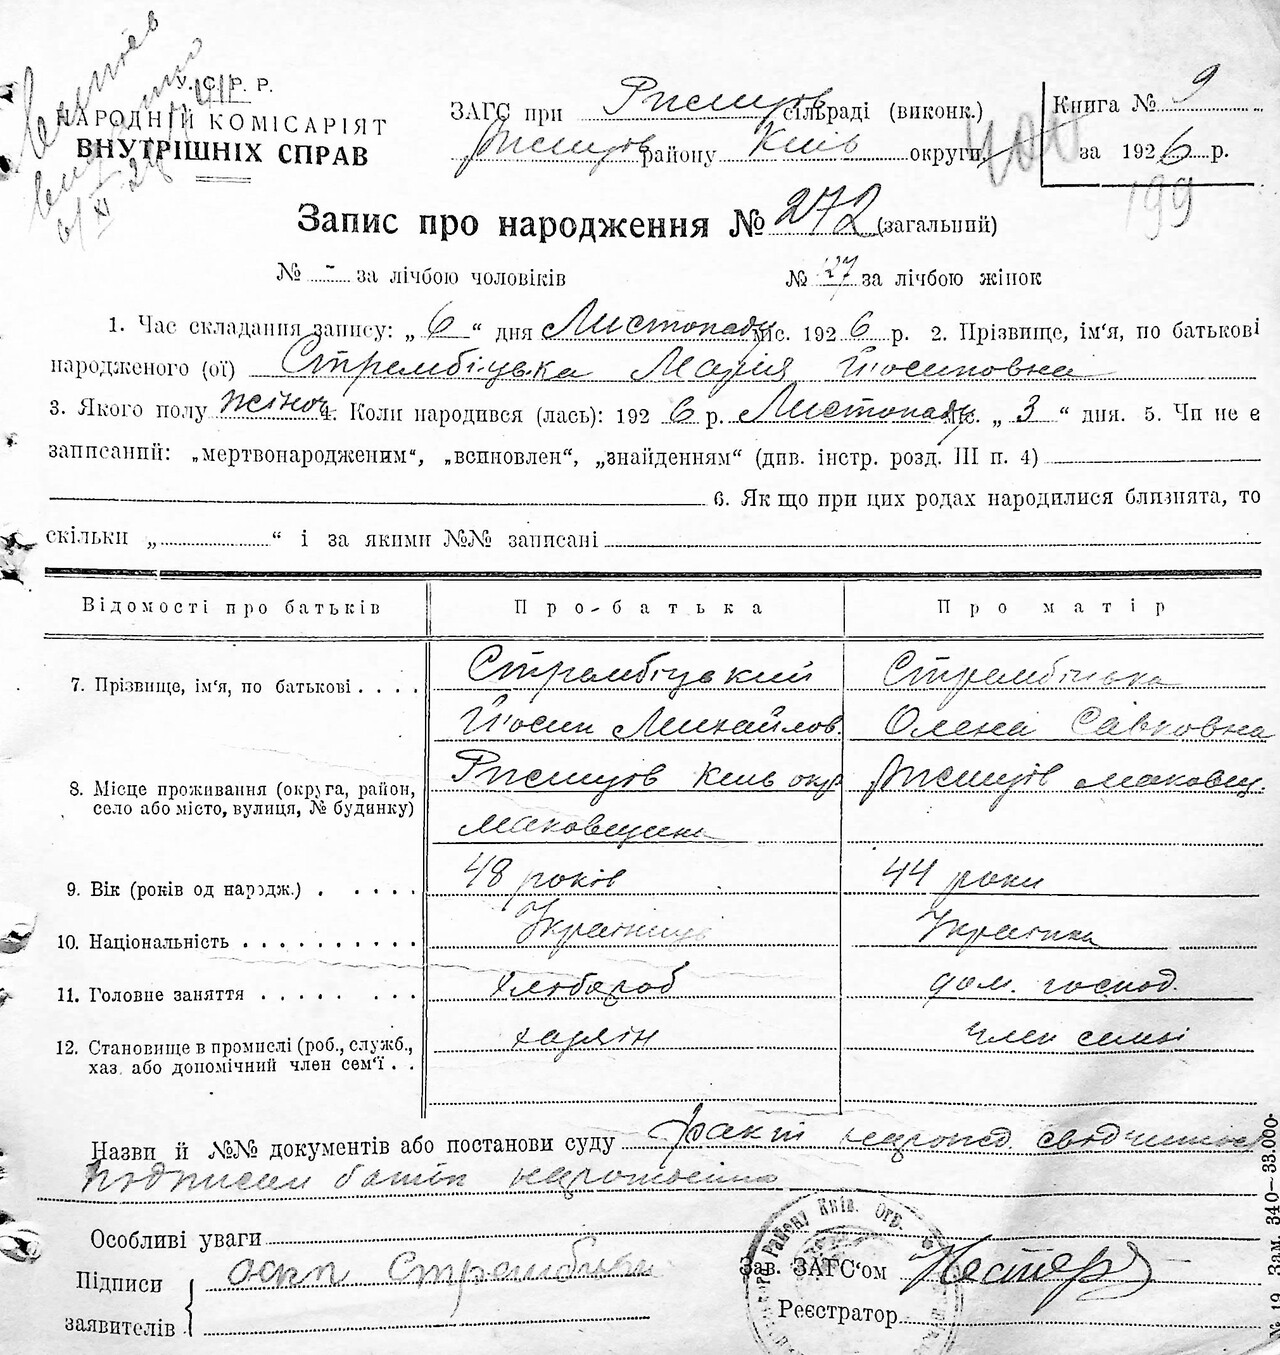 У. С. Р. Р.
НАРОДНІЙ КОМІСАРІЯТ
ВНУТРІШНІХ СПРАВ
ЗАГС при Ржищів сільраді (виконк.)
Ржищів району Київ округи
Книга № 9
за 1926 р.
400
199
Запис про народження № 272 (загальний)
№ - за лічбою чоловіків № 127 за лічбою жінок
1. Час складання запису: „ 6 “ дня Листопаду міс. 1926 р. 2. Прізвище, ім‘я, по батькові
народженого (ої) Стрембіцька Марія Йосиповна
3. Якого полу жіноч. 4. Коли народився (лась): 1926 р. Листопаду міс. „ 3 “ дня. 5. Чи не є
записаний: „мертвонародженим“, „всиновлен“, „знайденням“ (див. інстр. розд. III п. 4)
6. Як що при цих родах народилися близнята, то
скільки „ “ і за якими №№ записані
Відомості про батьків Про батька Про матір
7. Прізвище, ім‘я, по батькові Стрембіцький Стрембіцька
Йосип Михайлов. Олена Савковна
8. Місце проживання (округа, район, село або місто, вулиця, № будинку) Ржищів Київ окр Ржищів Маковещ.
Маковещина
9. Вік (років од народж.) 48 років 44 роки
10. Національність Українець Українка
11. Головне заняття хлібороб дом. господ.
12. Становище в промислі (роб., служб., хаз. або допомічний член сем‘ї хазяїн член семьї
Назви й №№ документів або постанови суду факт народ. свідчиться
підписом батьк
Особливі уваги
Підписи
заявителів
Осип Стрембіцки
Зав. ЗАГС‘ом Нестер
Реєстратор
Району Київ. Окр.
№ 19. Зам. 340—33.000.